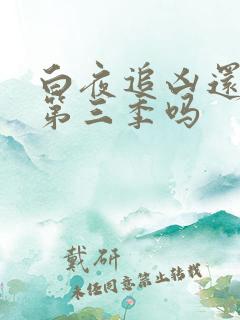 白夜追凶還
第三季吗
戴研
未经同意禁止转载